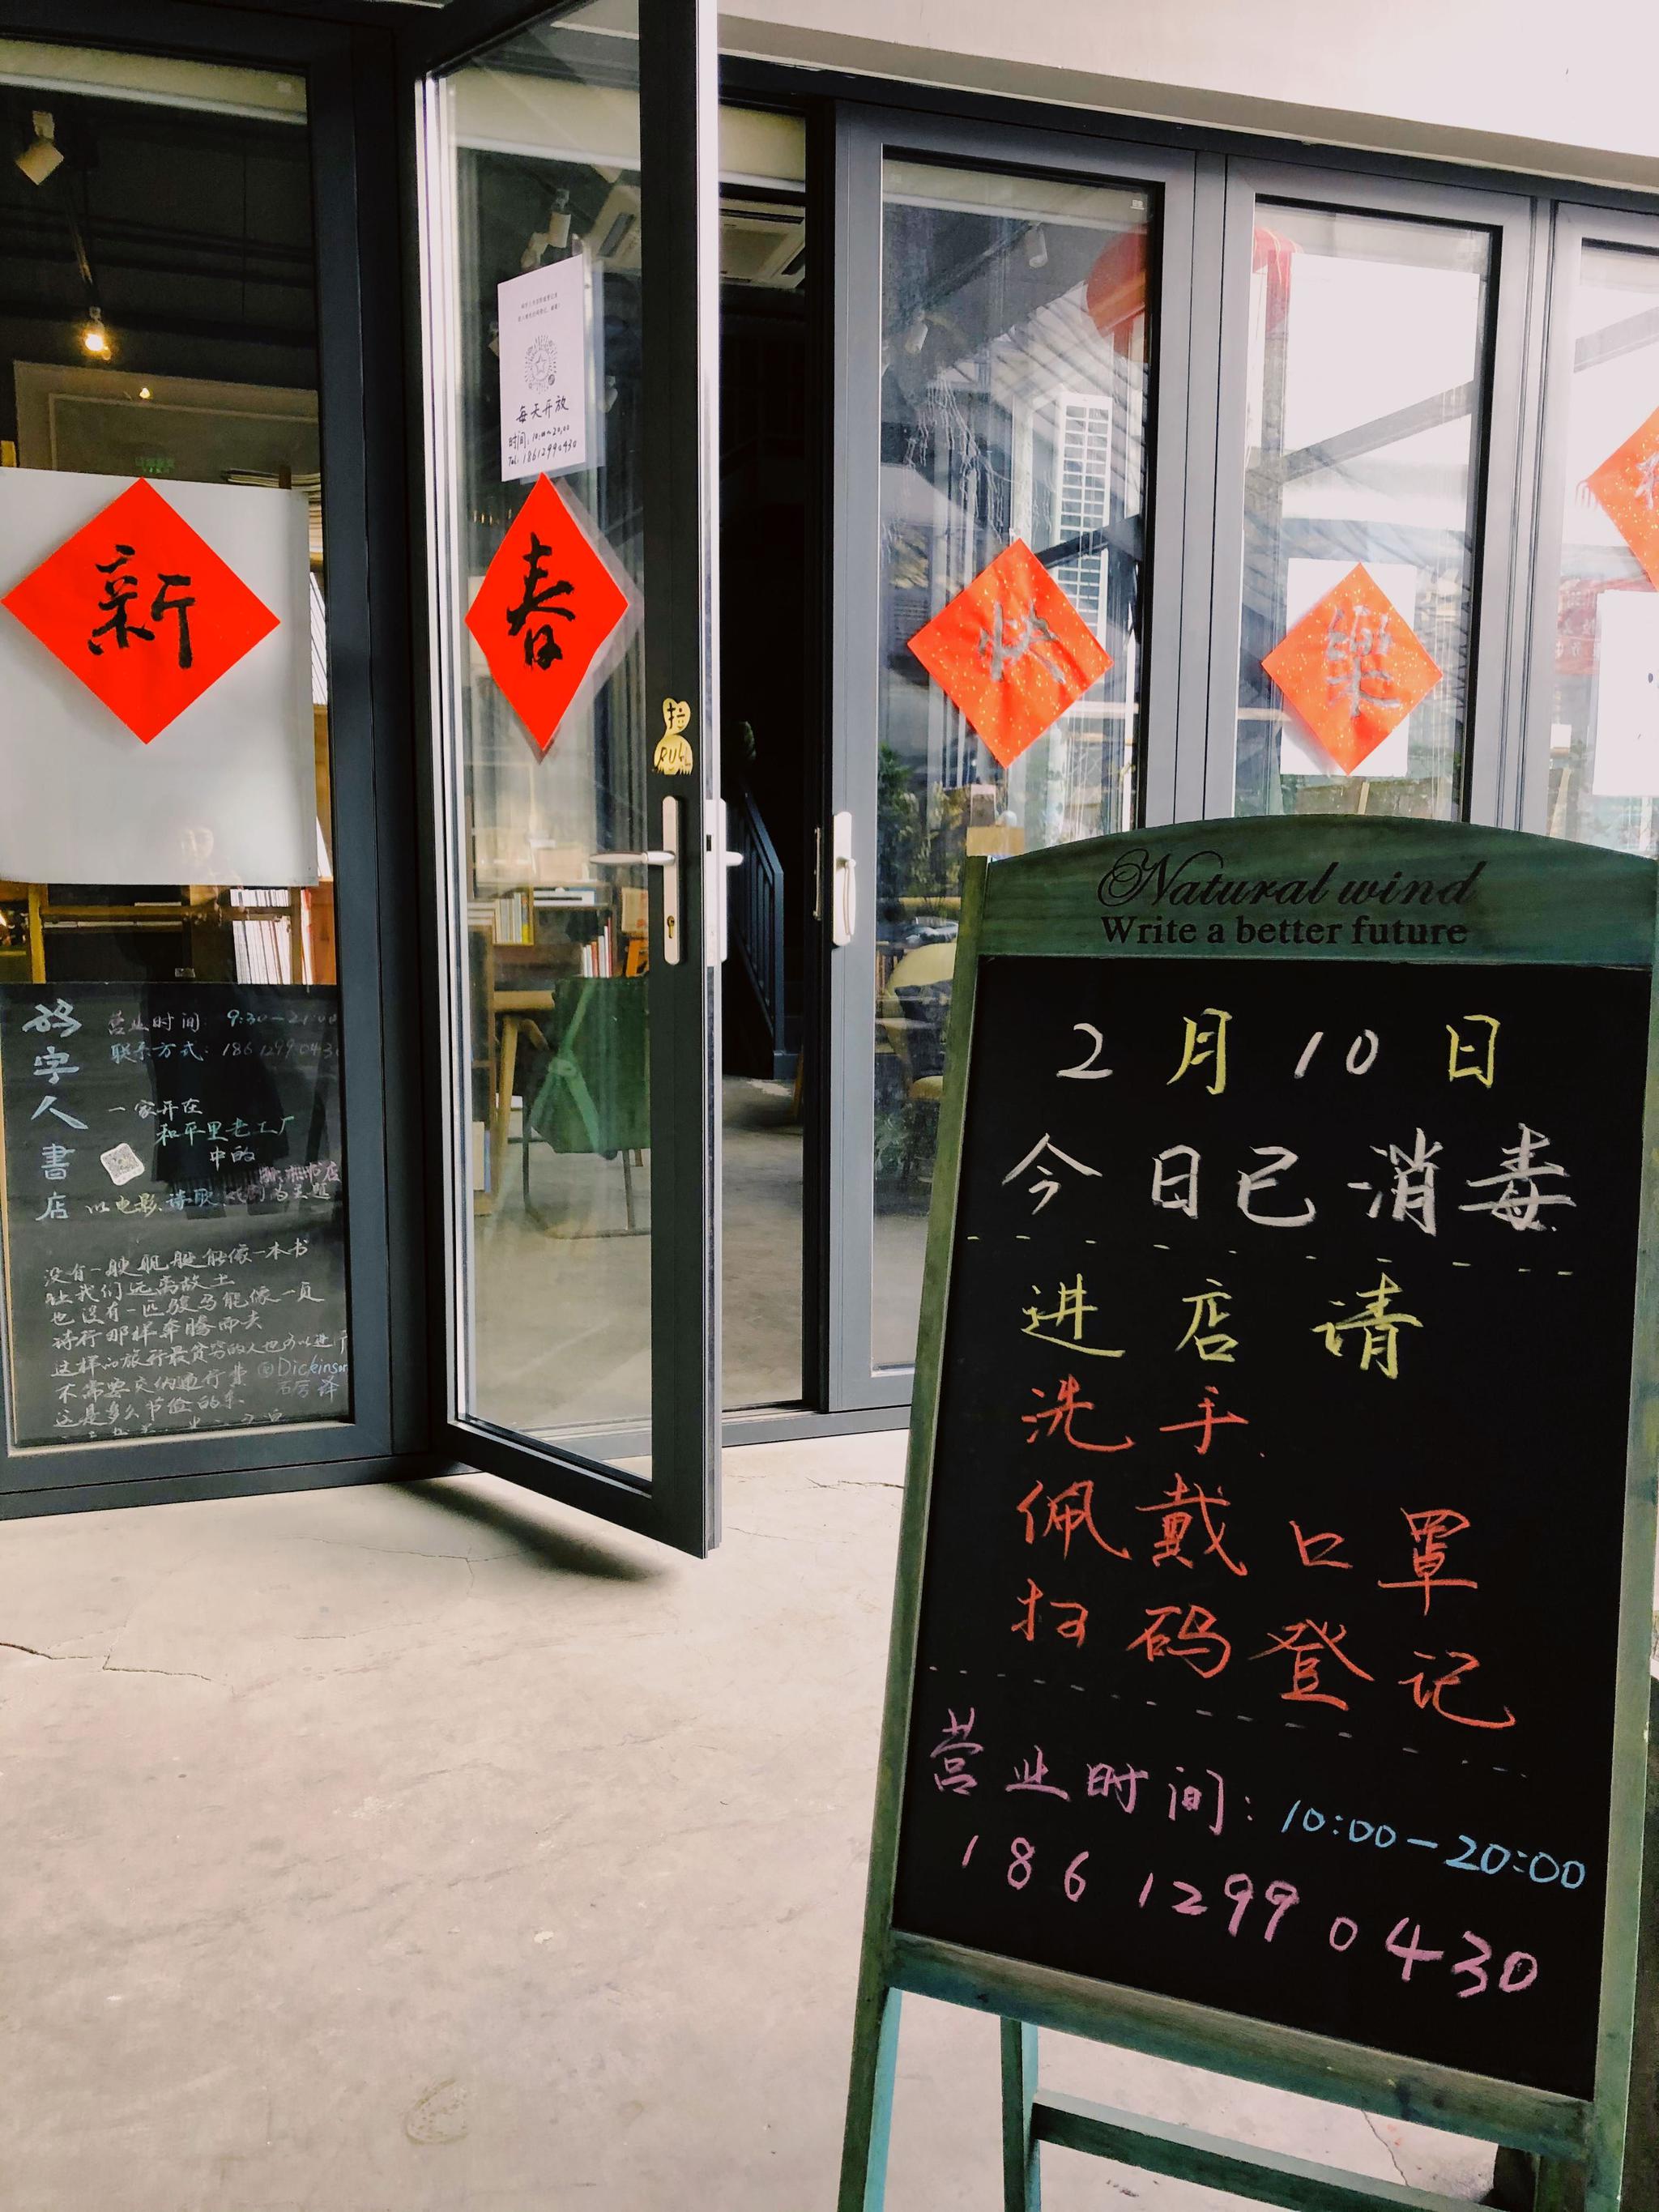 每天开放
时间：10:00~20:00
Tel: 18612990430
新
春
快
樂
拉
PULL
码字人書店
营业时间: 9:30—21:00
联系方式: 18612990430
一家开在
和平里老工厂
中的
以电影、诗歌、戏剧为主题
没有一艘舰艇能像一本书
让我们远离故土
也没有一匹骏马能像一页
诗行那样奔腾而去
这样的旅行最贫穷的人也可以进行
不需要交纳通行费
@Dickinson
石厉 译
这是多么节俭的车
Natural wind
Write a better future
2月10日
今日已消毒
进店请
洗手
佩戴口罩
扫码登记
营业时间: 10:00—20:00
186 1299 0430